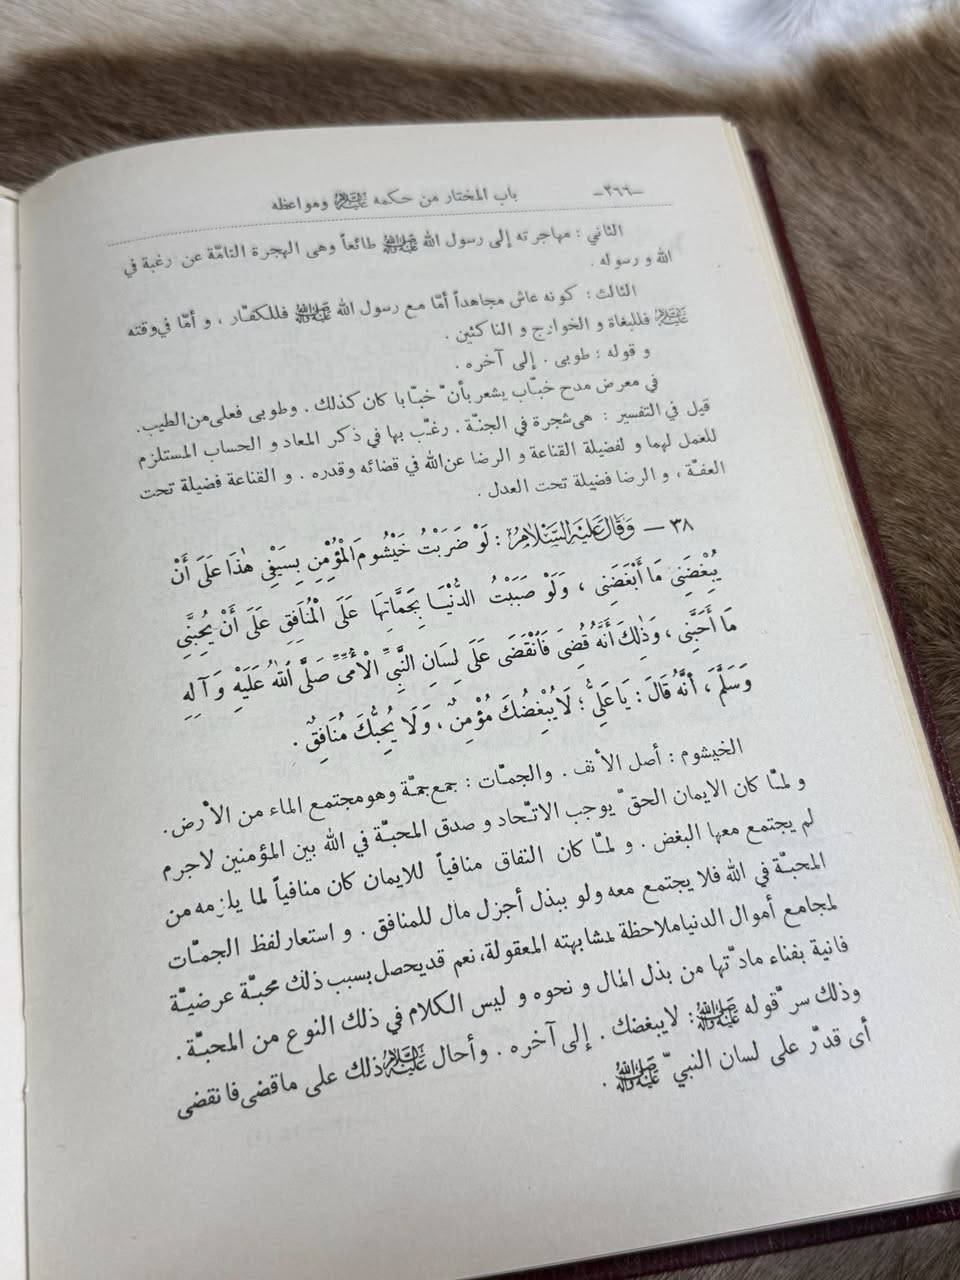 -٣٦٦- باب المختار من حكمه عليه السلام ومواعظه
الثاني : مهاجرته إلى رسول الله صلى الله عليه وآله طائعاً وهى الهجرة التامّة عن رغبة في
الله و رسوله .
الثالث : كونه عاش مجاهداً أمّا مع رسول الله صلى الله عليه وآله فللكفّار ، و أمّا في وقته
عليه السلام فللبغاة و الخوارج و الناكثين .
و قوله : طوبى . إلى آخره .
في معرض مدح خبّاب يشعر بأنّ خبّابا كان كذلك . وطوبى فعلى من الطيب .
قيل في التفسير : هى شجرة في الجنّة . رغّب بها في ذكر المعاد و الحساب المستلزم
للعمل لهما و لفضيلة القناعة و الرضا عن الله في قضائه وقدره . و القناعة فضيلة تحت
العفّة ، و الرضا فضيلة تحت العدل .
٣٨ — وَقَالَ عَلَيْهِ السَّلَامُ : لَوْ ضَرَبْتُ خَيْشُومَ الْمُؤْمِنِ بِسَيْفِى هٰذَا عَلَى أَنْ
يُبْغِضَنِى مَا أَبْغَضَنِى ، وَلَوْ صَبَبْتُ الدُّنْيَا بِجَمَّاتِهَا عَلَى الْمُنَافِقِ عَلَى أَنْ يُحِبَّنِى
مَا أَحَبَّنِى ، وَذٰلِكَ أَنَّهُ قُضِىَ فَانْقَضَى عَلَى لِسَانِ النَّبِىِّ الْأُمِّىِّ صَلَّى اللهُ عَلَيْهِ وَآلِهِ
وَسَلَّمَ ، أَنَّهُ قَالَ : يَا عَلِىُّ ؛ لَا يُبْغِضُكَ مُؤْمِنٌ ، وَلَا يُحِبُّكَ مُنَافِقٌ .
الخيشوم : أصل الأنف . والجمّات : جمع جمّة وهو مجتمع الماء من الأرض .
و لمّا كان الايمان الحقّ يوجب الاتّحاد و صدق المحبّة في الله بين المؤمنين لاجرم
لم يجتمع معها البغض . و لمّا كان النفاق منافياً للايمان كان منافياً لما يلزمه من
المحبّة في الله فلا يجتمع معه ولو ببذل أجزل مال للمنافق . و استعار لفظ الجمّات
لمجامع أموال الدنيا ملاحظة لمشابهته المعقولة، نعم قد يحصل بسبب ذلك محبّة عرضيّة
فانية بفناء مادّتها من بذل المال و نحوه و ليس الكلام في ذلك النوع من المحبّة .
وذلك سرّ قوله صلى الله عليه وآله : لا يبغضك . إلى آخره . وأحال عليه السلام ذلك على ما قضى فانقضى
أى قدّر على لسان النبيّ صلى الله عليه وآله .